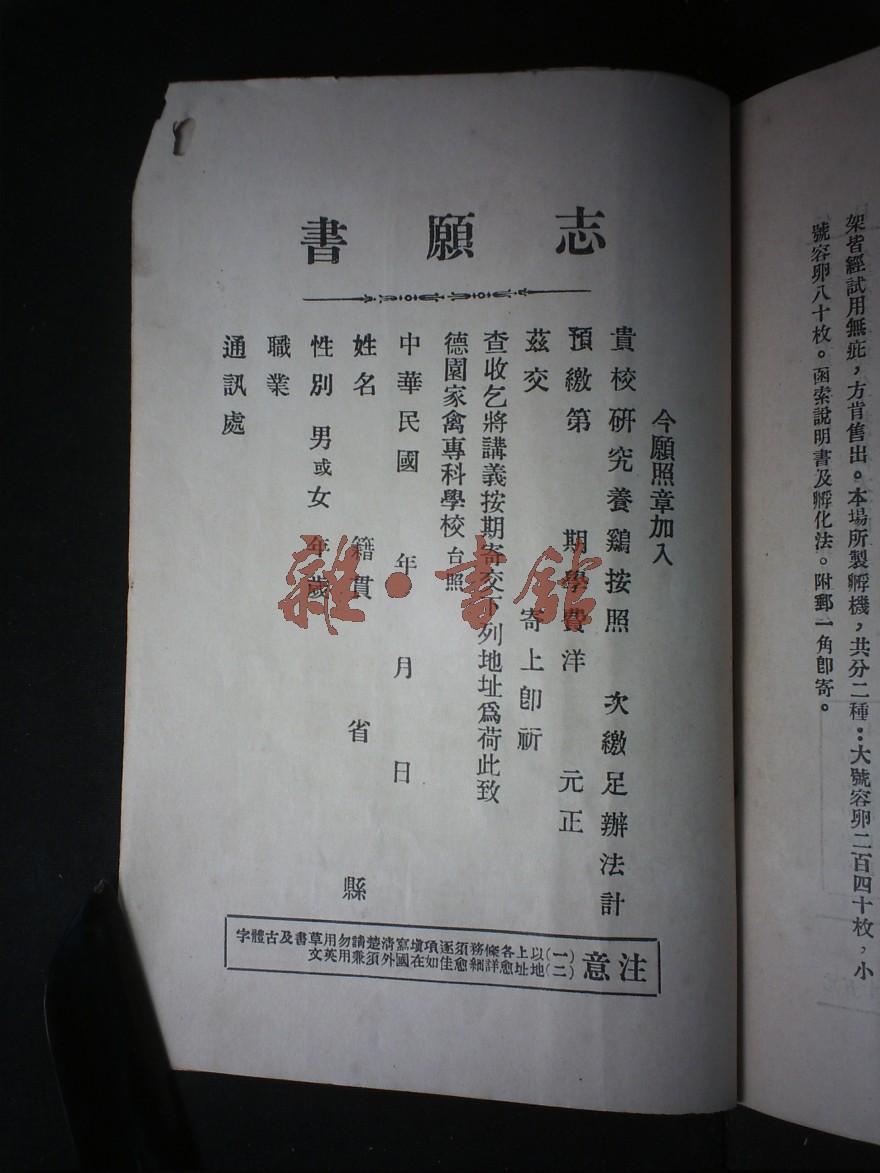 架皆經試用無疵，方肯售出。本場所製孵機，共分二種：大號容卵二百四十枚，小
號容卵八十枚。函索說明書及孵化法。附郵一角卽寄。
志願書
今願照章加入
貴校研究養鷄按照　次繳足辦法計
預繳第　期學費洋　元正
茲交　寄上卽祈
查收乞將講義按期寄交下列地址爲荷此致
德園家禽專科學校台照
中華民國　年　月　日
姓名　籍貫　省　縣
性別　男或女　年歲
職業
通訊處
注意
(一)以上各條務須逐項塡寫淸楚請勿用草書及古體字
(二)地址愈詳細愈佳如在國外須兼用英文
雜·書館